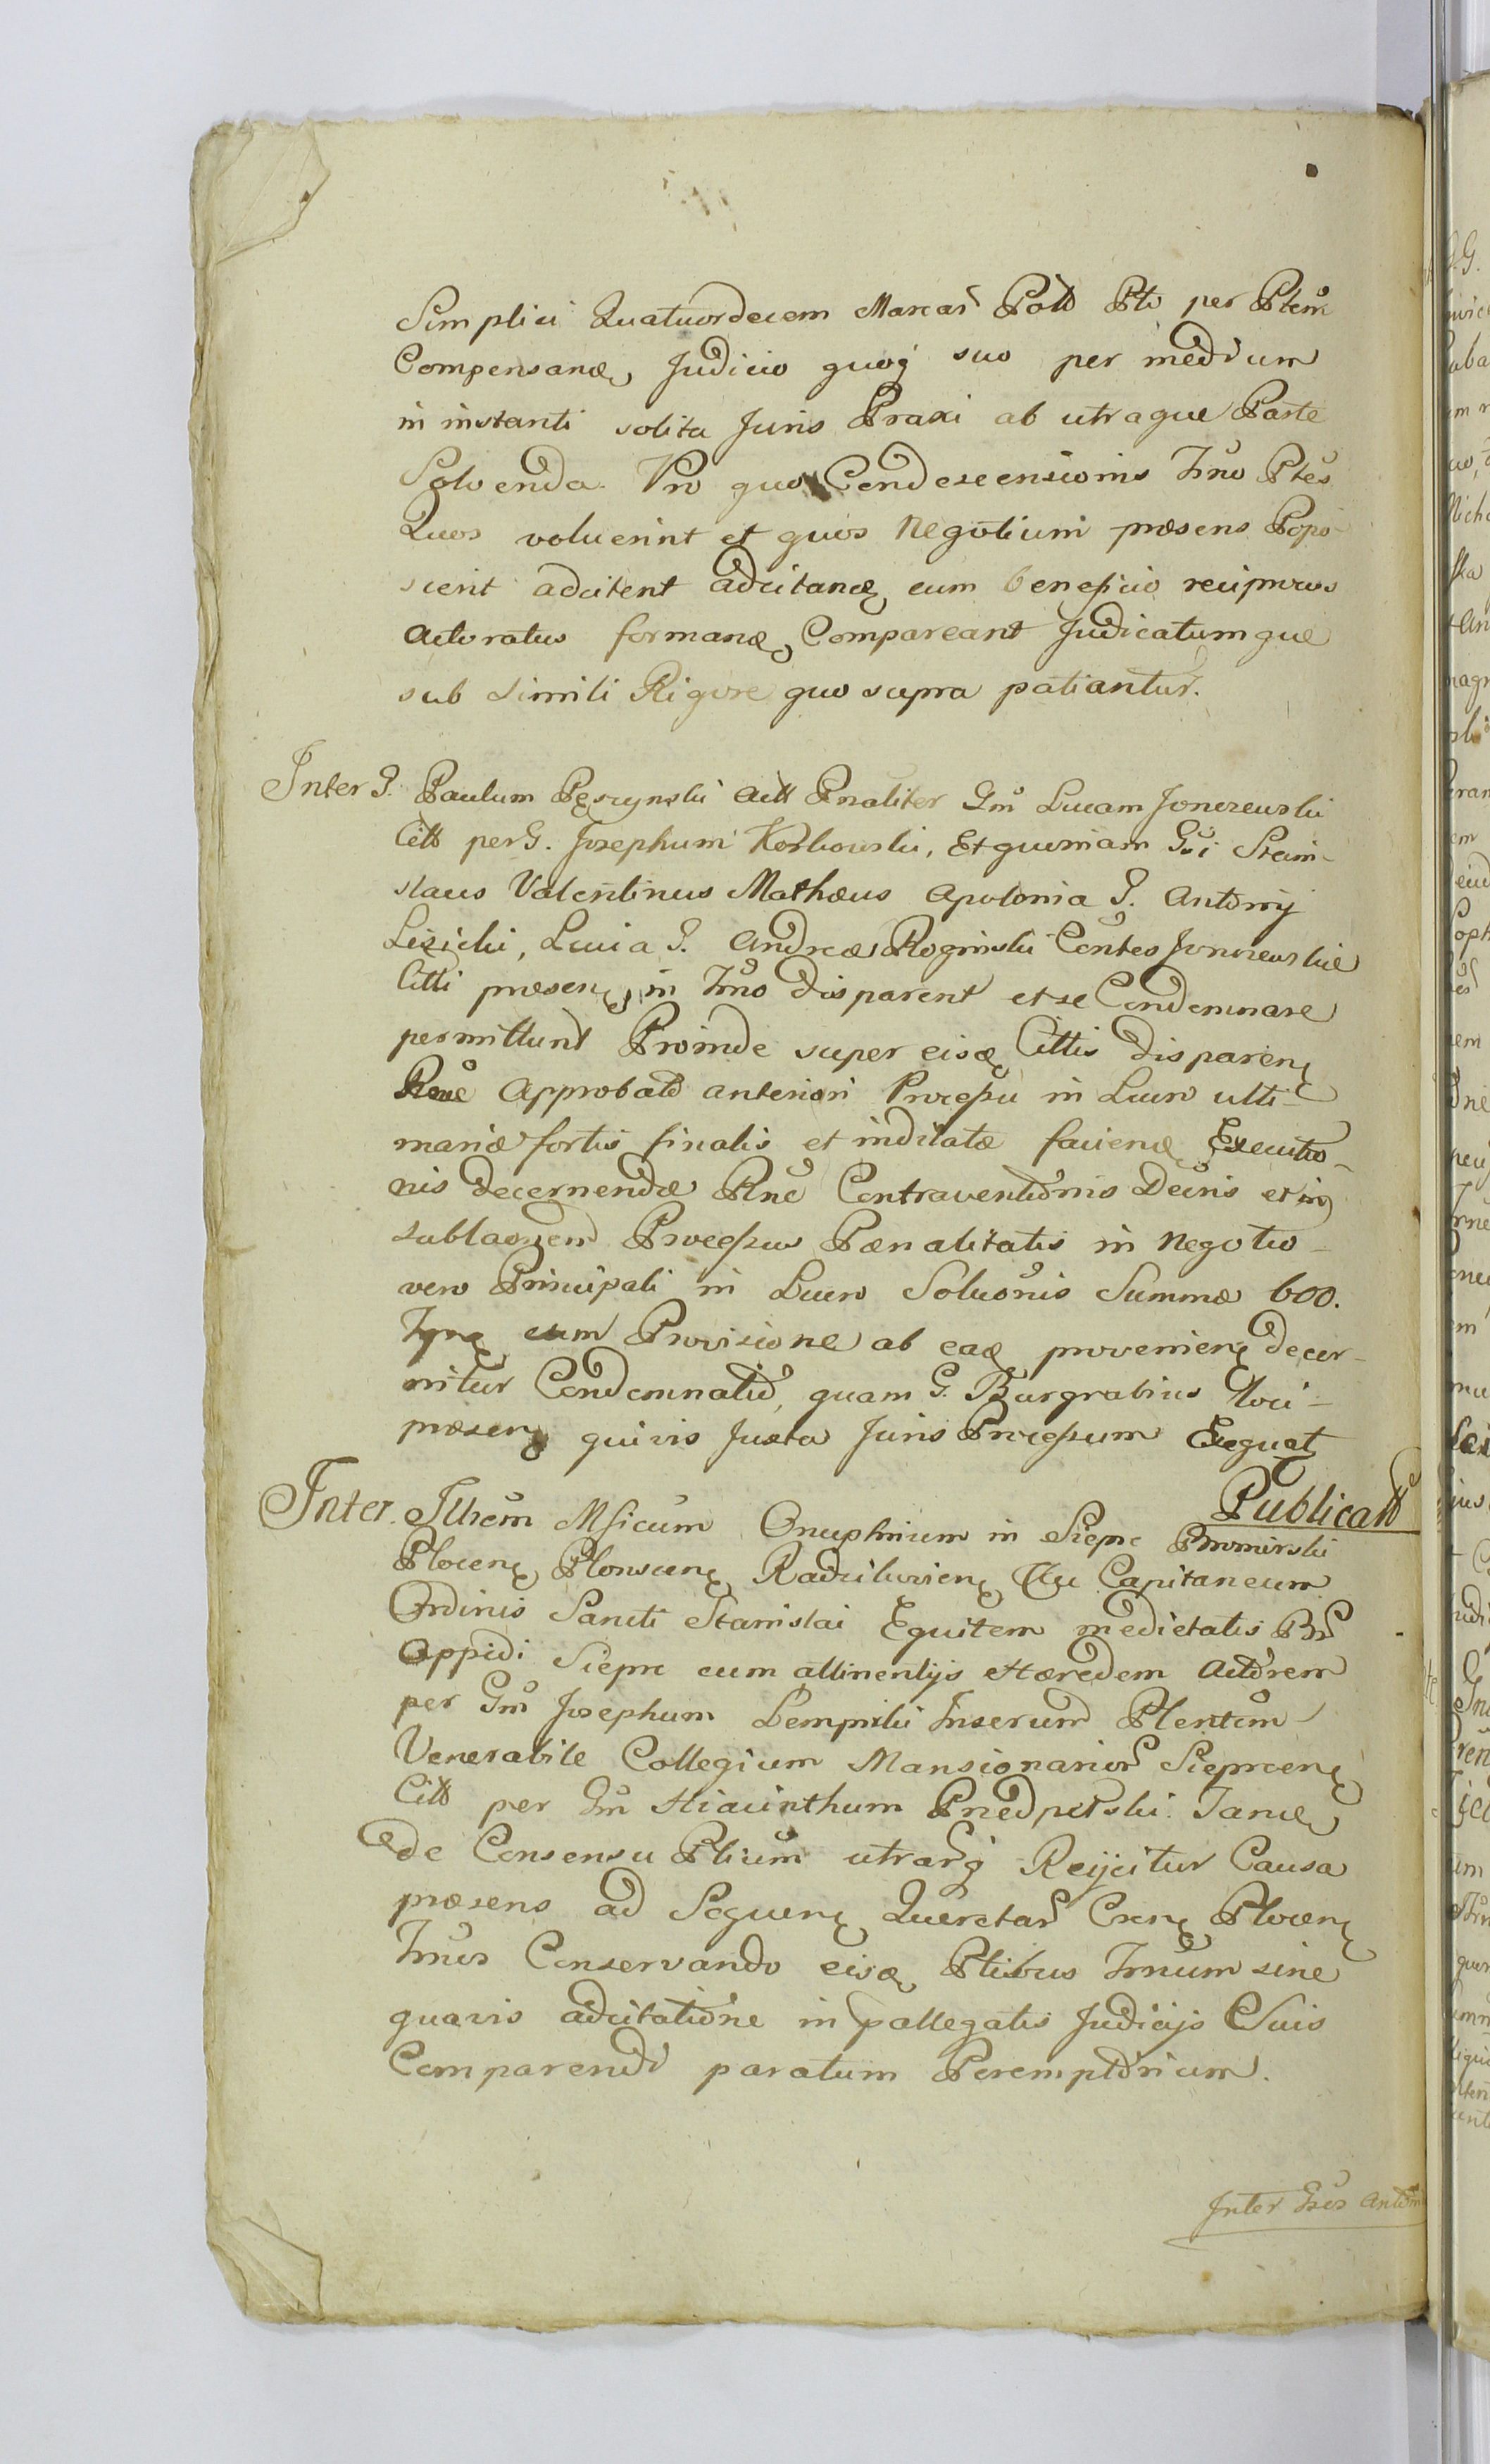 Simplici Quatuordecem Marcar Poll Pto per Ptem
Compensanđ, Judicio quoq suo per medium
in instanti solita Juris Praxi ab utraque Parte
Solvenda. Pro quo Condescensionis Trno Ptes
Quos voluerint et quos Negotium præsens Popo-
scerit adcitent adcitandę cum beneficio reciprocus
Actoratus formandę, Compareant Judicatumque
sub simili Rigore quo supra patiantur.
Inter G. Paulum Pęszynski Actt Pnaliter Gm Lucam Jonczewski
Citt per G. Josephum Korbowski, Et quoniam Gsi Stani-
slaus Valentinus Mathæus Apolonia G. Antonij
Lisicki, Lucia G. Andreæ Roginski Contes Jonczewskie
Citti præsenę in Trno disparent et se Condemnare
permittunt Proinde super eisdę Cittis disparenę
Rne Approbato anteriori Processu in Lucro ulti-
mariæ fortis finalis et indilatæ faciendę Executio-
nis decernendæ Rne Contraventionis Decris et in
sublaõnem Processus Pœnalitatis in Negotio
vero Principali in Lucro Soluonis Summæ 600.
Tynę cum Provisione ab eadę provenienę decer-
nitur Condemnatio, quam G. Burgrabius loci
præsenę quivis Juxta Juris Processum Exequat
Publicatt
Inter. Illrem Msicum Onuphrium in Sieprc Bromirski
Plocenę Plonscenę Radzilovienę &c Capitaneum
Ordinis Sancti Stanislai Equitem medietatis Br
Oppidi Sieprc cum attinentijs Hæredem Actorem
per Gm Josephum Lempicki Inserum Plentem
Venerabile Collegium Mansionarior Sieprcenę
Citt per Gm Hiacinthum Przedpełski. Tandę
de Consensu Ptium utrarq Reijcitur Causa
præsens ad Sequenę Querelar Crenę Plocenę
Trnos Conservando eisdę Ptibus Trnum sine
quavis adcitatione in pallegatis Judicijs Suis
Comparendi paratum Peremptorium.
Inter Gsos Anton